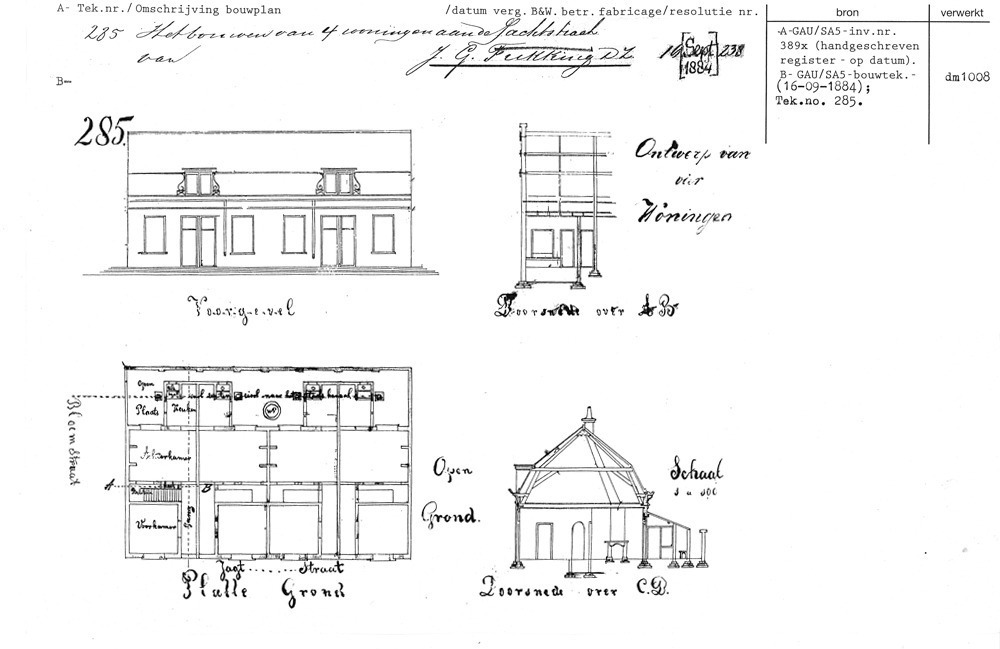 A- Tek.nr./Omschrijving bouwplan /datum verg. B&W. betr. fabricage/resolutie nr.
bron
verwerkt
285 Het bouwen van 4 woningen aan de Jachtstraat
van J. G. Fukking DZ.
16 [Sept 1884] 238
B-
-A-GAU/SA5-inv.nr.
389x (handgeschreven
register - op datum).
B- GAU/SA5-bouwtek.-
(16-09-1884);
Tek.no. 285.
dm1008
285.
Ontwerp van
vier
Woningen
Voorgevel
Doorsnede over AB
Open
Plaats
Keuken
WP
Achterkamer
A
B
Voorkamer
Gang
Bloem Straat
Open
Grond.
Jagt......Straat
Platte Grond
Schaal
Doorsnede over C.D.